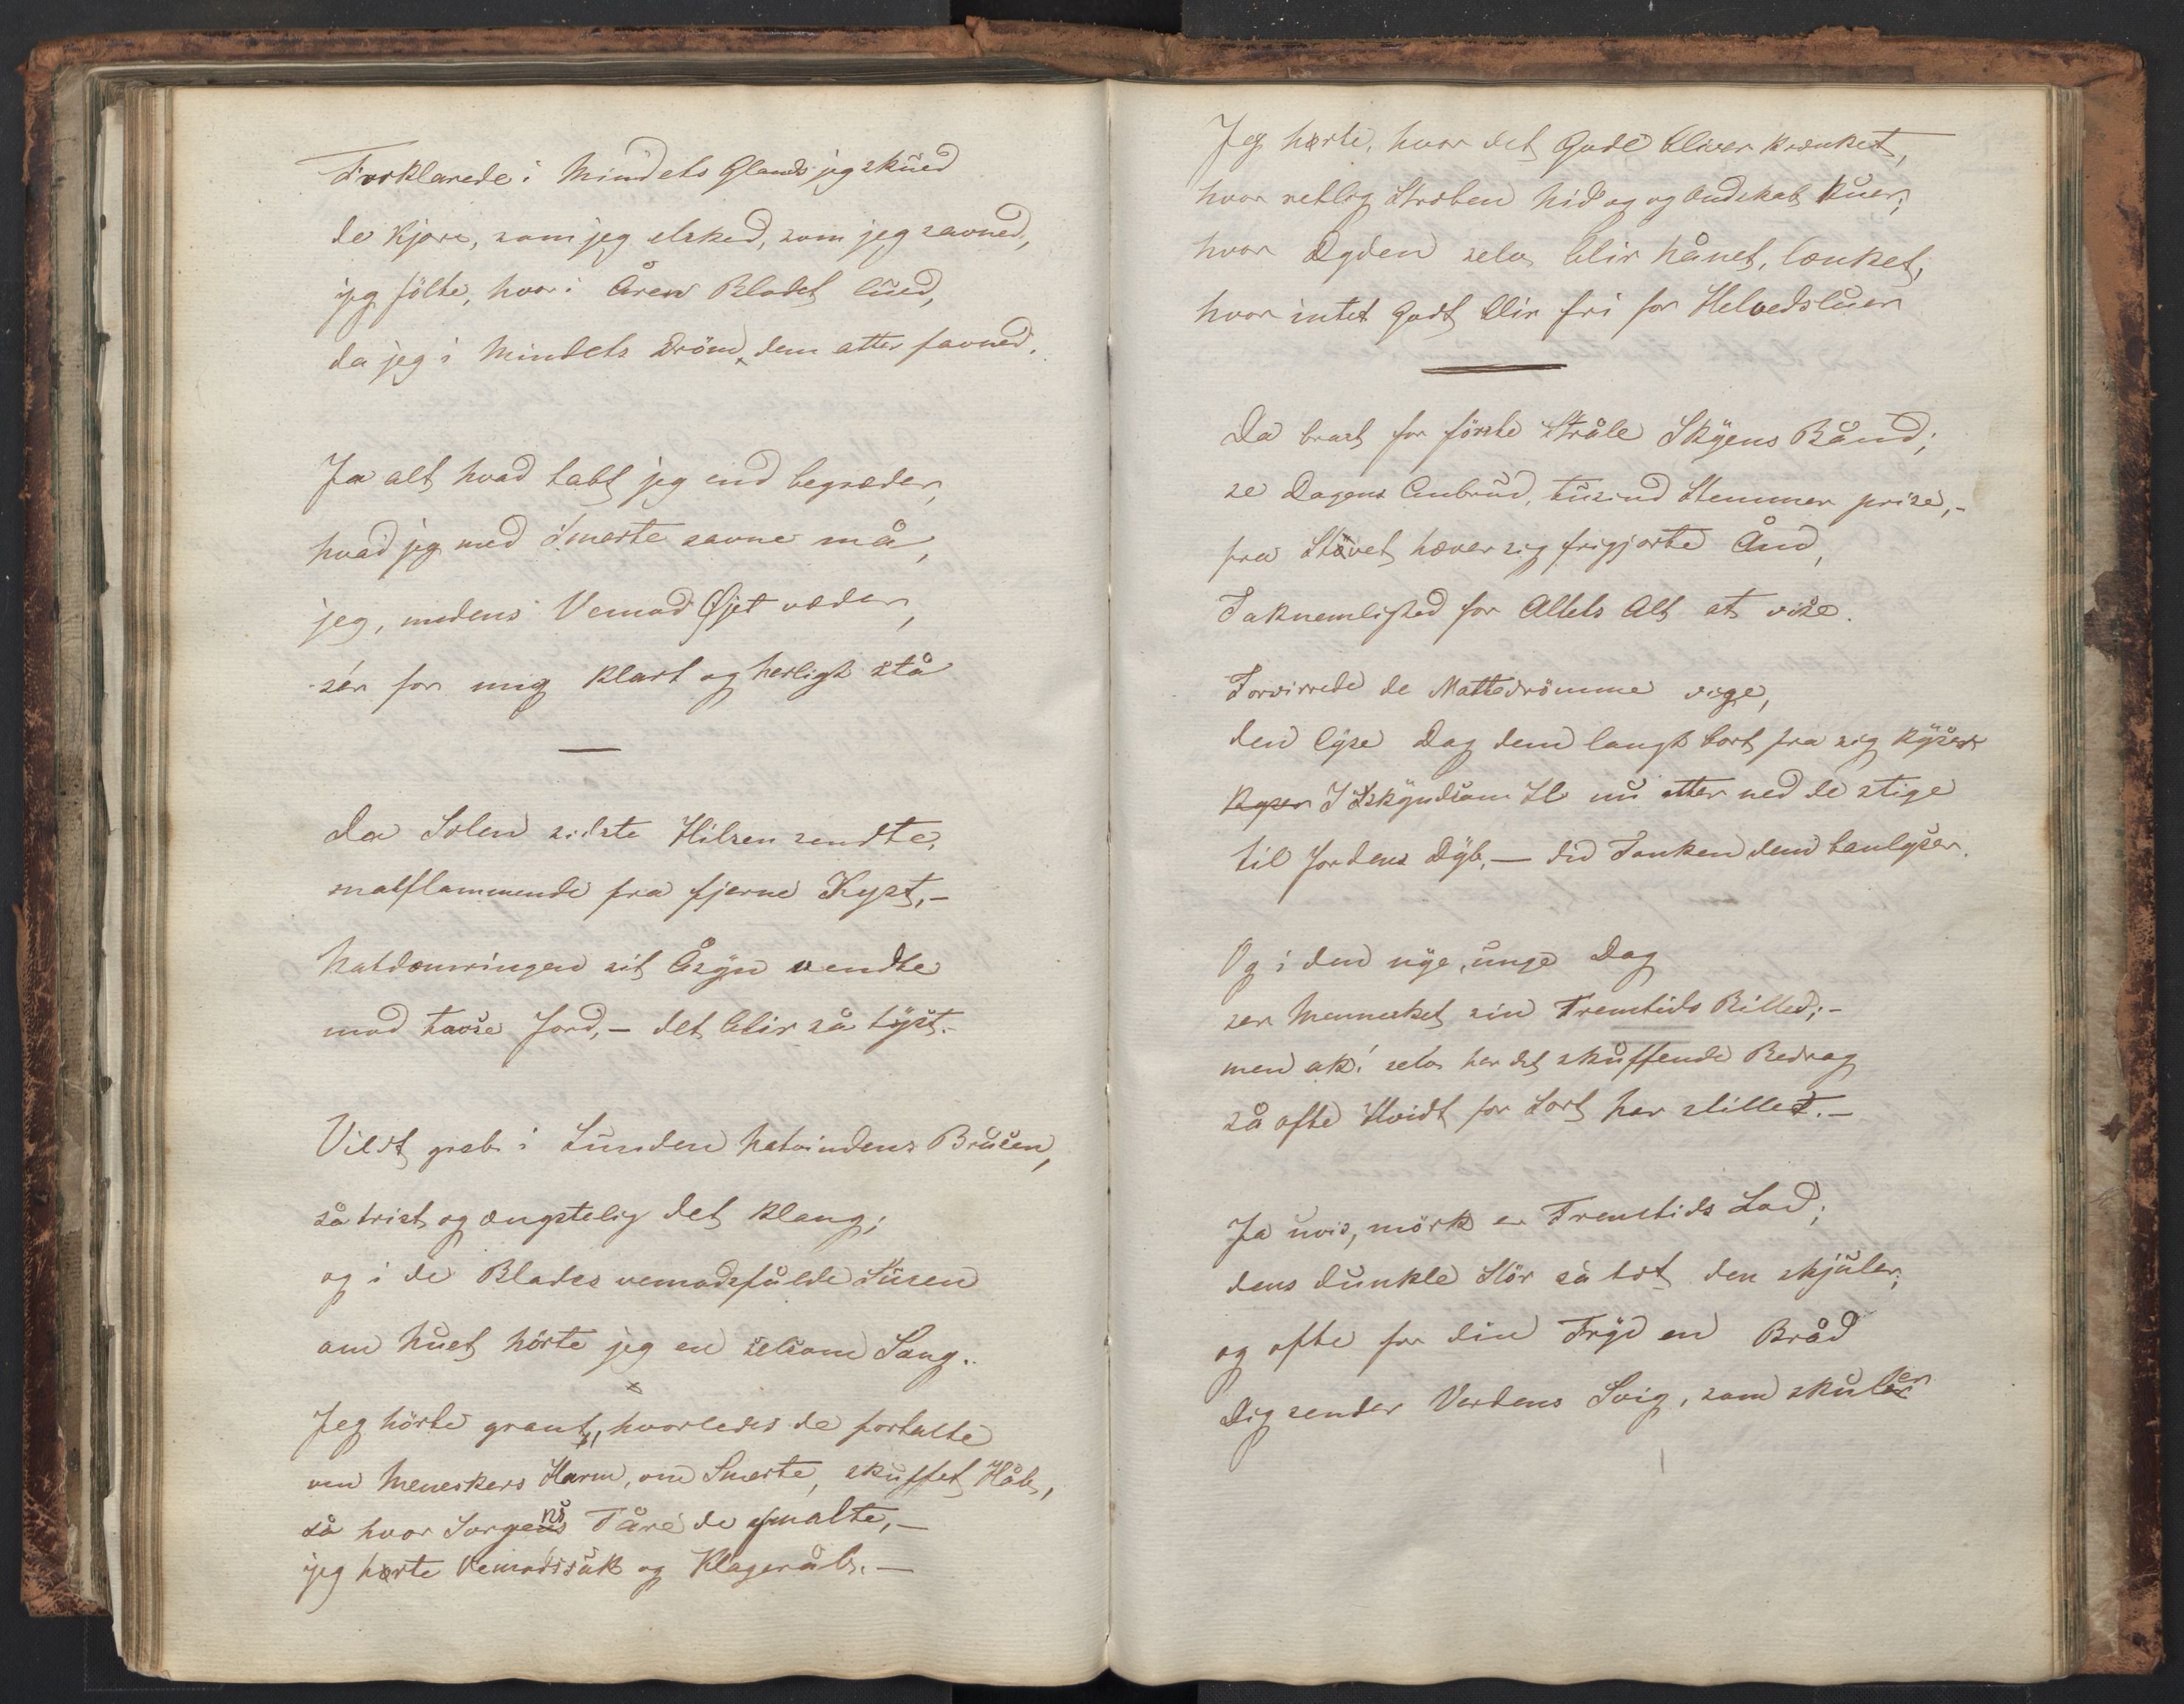 Forklarede i Mindets Glands jeg skued
de Kjære, som jeg elsked, som jeg savned,
jeg fölte, hvor i Åren Blodet lued,
da jeg i Mindets Dröm dem atter favned.
Ja alt hvad tabt jeg end begræder,
hvad jeg med Smerte savne må,
jeg, medens Vemod Øjet væder,
sér for mig klart og herligt stå
Da Solen sidste Hilsen sendte,
matflammende fra fjerne Kyst,-
Natdæmringen sit Åsyn vendte
mod tavse Jord,- det blir så tyst.-
Vildt greb i Lunden Natvindens Brusen,
så trist og ængstelig det klang;
og i de Blades vemodsfulde Susen
om huet hörte jeg en selsom Sang..
Jeg hörte grant, hvorledes de fortalte
om Meneskers Harm, om Smerte, skuffet Håb,
så hvor Sorgens Tåre de malte,-
jeg hørte Vemodssuk og Klageråb.-
Jeg hørte, hvor det Gode bliver krænket,
hvor retlig Stræben Nid og og Ondskab kuer;
hvor Dyden selv blir hånet, lænket,
hvor intet Godt blir fri for Helvedsluer
Da brast for förste Stråle Skyens Bånd;
se Dagens Anbrud, tusind Stemmer prise,-
fra Støvet hæver sig frigjorte Ånd,
Taknemlighed for Altets Alt at vise.
Forvirrede de Nattedrömme vige,
den lyse Dag dem langt bort fra sig kyser
kyser I ilskyndsom Il nu atter ned de stige
til Jordens Dyb,- did Tanken dem banlyser.
Og i den nye, unge Dag
ser Mennesket sin Fremtids Billed;-
men ak! selv her det skuffende Bedrag
så ofte Hvidt for Sort har stillet.-
Ja uvis, mörk er Fremtids Lod;
dens dunkle Slör så tæt den skjuler;
og ofte for din Fryd en Bråd
Dig sender Verdens Svig, som skuler